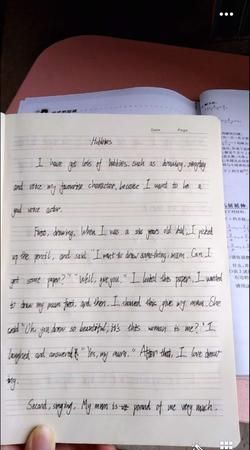 Date Page
Hobbies
I have got lots of hobbies, such as drawing, singing
and voice my favourite character, because I want to be a
good voice actor.
First, drawing. When I was a six years old kid, I picked
up the pencil, and said "I want to draw something, mum. Can I
get some paper?" "Well, give you." I hold this paper, I wanted
to draw my mum first. and then. I showed this give my mum. She
said "Oh. You drew so beautiful, is this woman is me?" I
laughed and answered "Yes, my mum." After that, I love draw
ing.
Second, singing. My mom is pound of me very much.